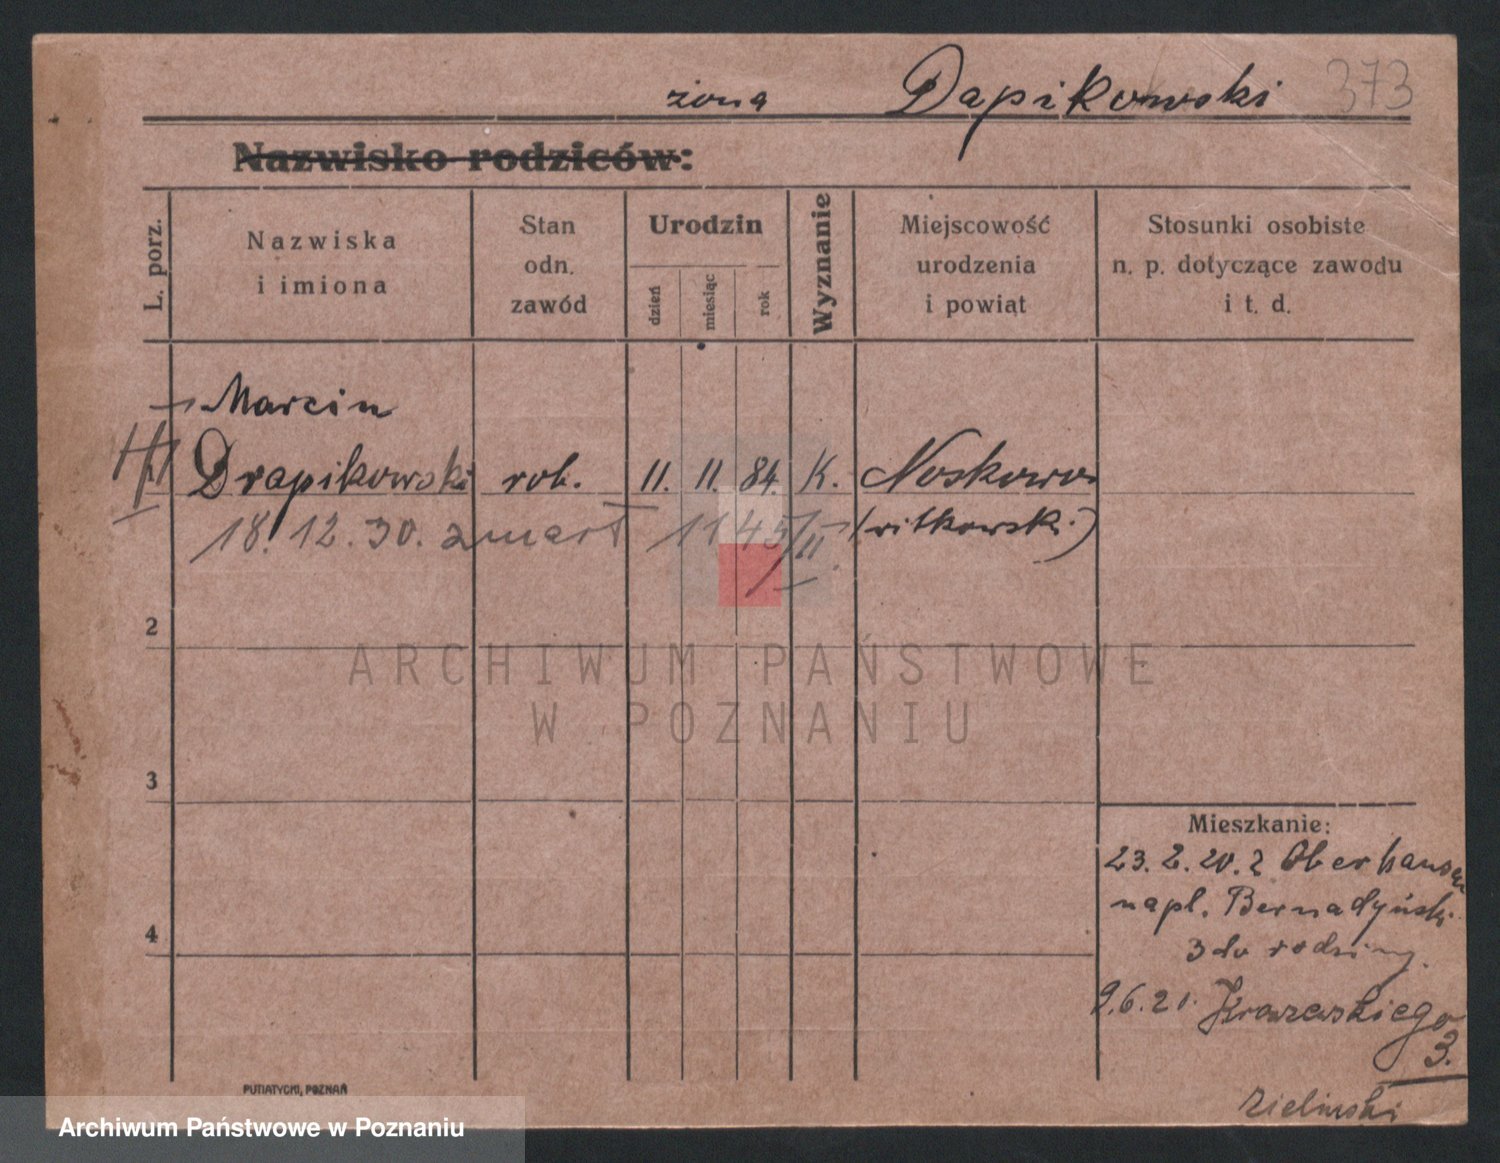 żona Dapikowski 373
Nazwisko rodziców:
L. porz.
Nazwiska
i imiona
Stan
odn.
zawód
Urodzin
dzień
miesiąc
rok
Wyznanie
Miejscowość
urodzenia
i powiat
Stosunki osobiste
n. p. dotyczące zawodu
i t. d.
Marcin
Drapikowski rob. 11. 11. 84. K. Noskowo
18. 12. 30. zmarł 1145/II (witkowski)
2
ARCHIWUM PAŃSTWOWE
W POZNANIU
3
Mieszkanie:
23. 2. 20. z Oberhausen
na pl. Bernadyński
3 do rodziny.
4
9.6.21. Kraszewskiego
3.
Zieliński
PUTIATYCKI, POZNAŃ
Archiwum Państwowe w Poznaniu